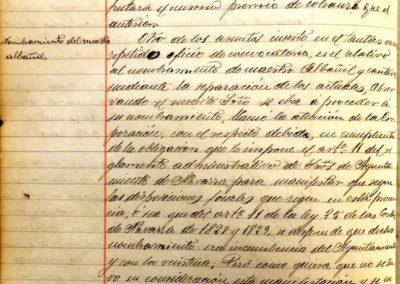 frutara el mismo premio de cobranza que el
anterior.
Nombramiento del maestro
albañil.
Otro de los asuntos inserto en el tantas veces
repetido oficio de convocatoria, es el relativo
al nombramiento de maestro Albañil y cantero
mediante la separación de los actuales. Obser
vando el nuestro Srio se iba a proceder á
su nombramiento, llamó la atención de la Cor
poración, con el respeto debido, en cumplimiento
de la obligacion que le impone el artº 11 del re
glamento administrativo de Srios de Ayunta
miento de Navarra para manifestar que segun
las disposiciones forales que rigen en esta provin
cia, ó sea que del artº 11 de la ley 25 de las Cortes
de Navarra de 1828 y 1829, se desprende que dicho
nombramiento era incumbencia del Ayuntamiento
y con la veintena; Peró como quiera que no se tu
vo en consideración esta manifestación y se en